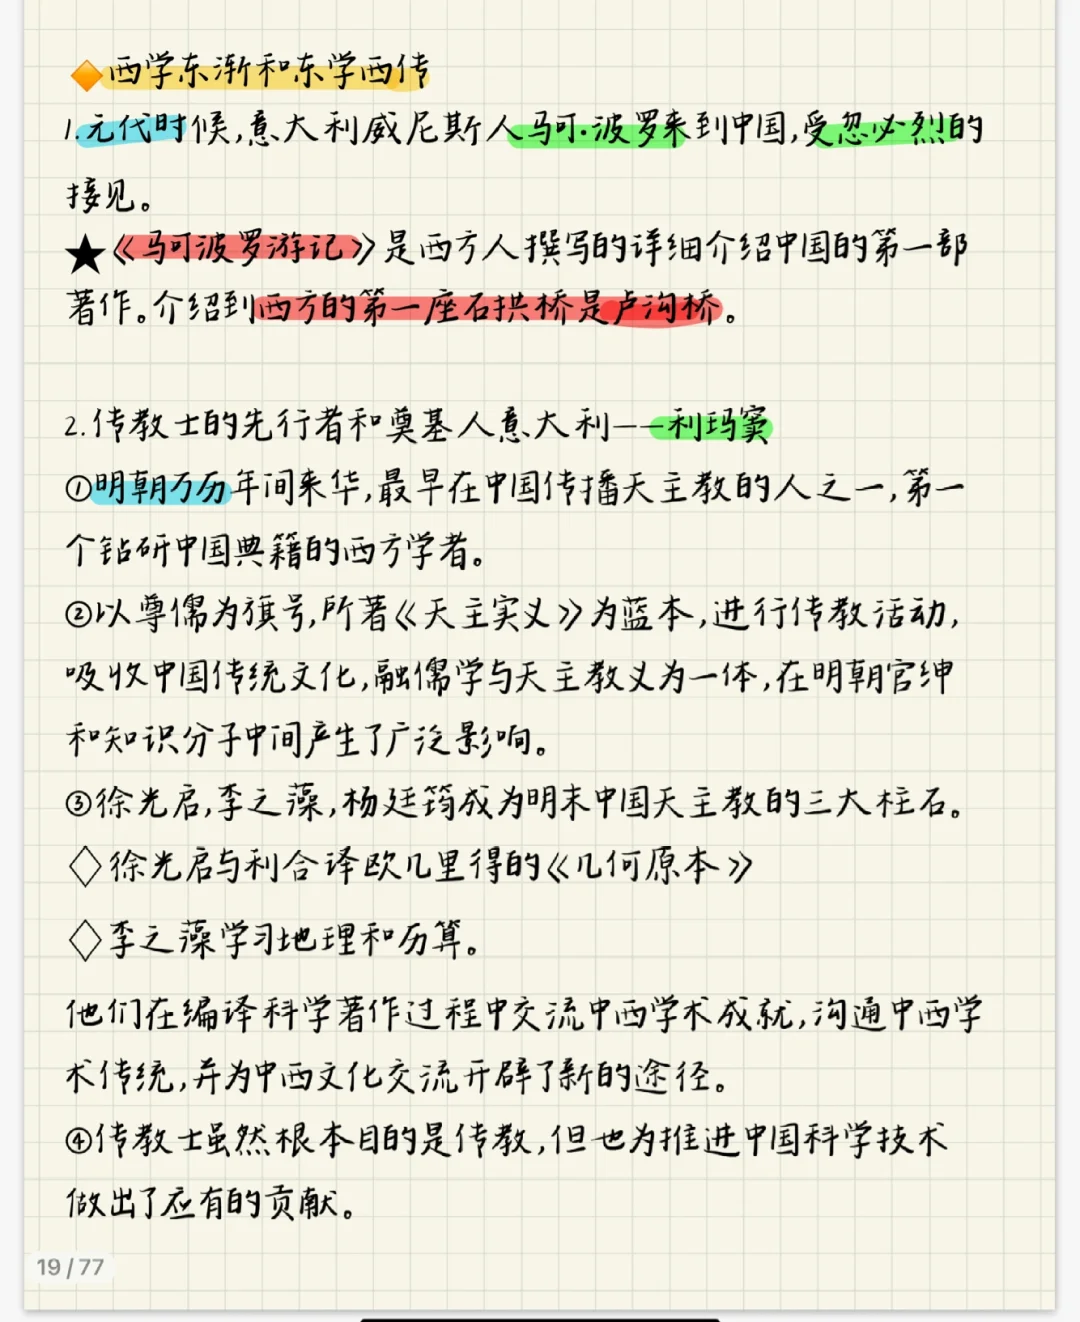 🔶西学东渐和东学西传
1.元代时候,意大利威尼斯人马可·波罗来到中国,受忽必烈的
接见。
★《马可波罗游记》是西方人撰写的详细介绍中国的第一部
著作。介绍到西方的第一座石拱桥是卢沟桥。
2.传教士的先行者和奠基人意大利——利玛窦
①明朝万历年间来华,最早在中国传播天主教的人之一,第一
个钻研中国典籍的西方学者。
②以尊儒为旗号,所著《天主实义》为蓝本,进行传教活动,
吸收中国传统文化,融儒学与天主教义为一体,在明朝官绅
和知识分子中间产生了广泛影响。
③徐光启,李之藻,杨廷筠成为明末中国天主教的三大柱石。
◇徐光启与利合译欧几里得的《几何原本》
◇李之藻学习地理和历算。
他们在编译科学著作过程中交流中西学术成就,沟通中西学
术传统,并为中西文化交流开辟了新的途径。
④传教士虽然根本目的是传教,但也为推进中国科学技术
做出了应有的贡献。
19/77